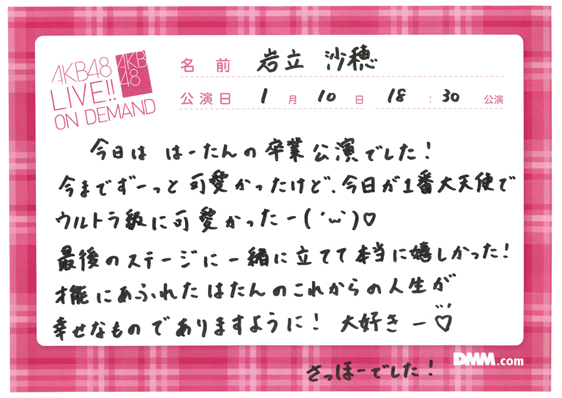 AKB48
LIVE!!
ON DEMAND
AKB
48
名前 岩立 沙穂
公演日 1月10日 18:30公演
今日は はーたんの卒業公演でした!
今までずーっと可愛かったけど、今日が1番大天使で
ウルトラ級に可愛かったー(´ω`)♡
最後のステージに一緒に立てて本当に嬉しかった!
才能にあふれたはたんのこれからの人生が
幸せなものでありますように! 大好きー♡
DMM.com
さっほーでした!